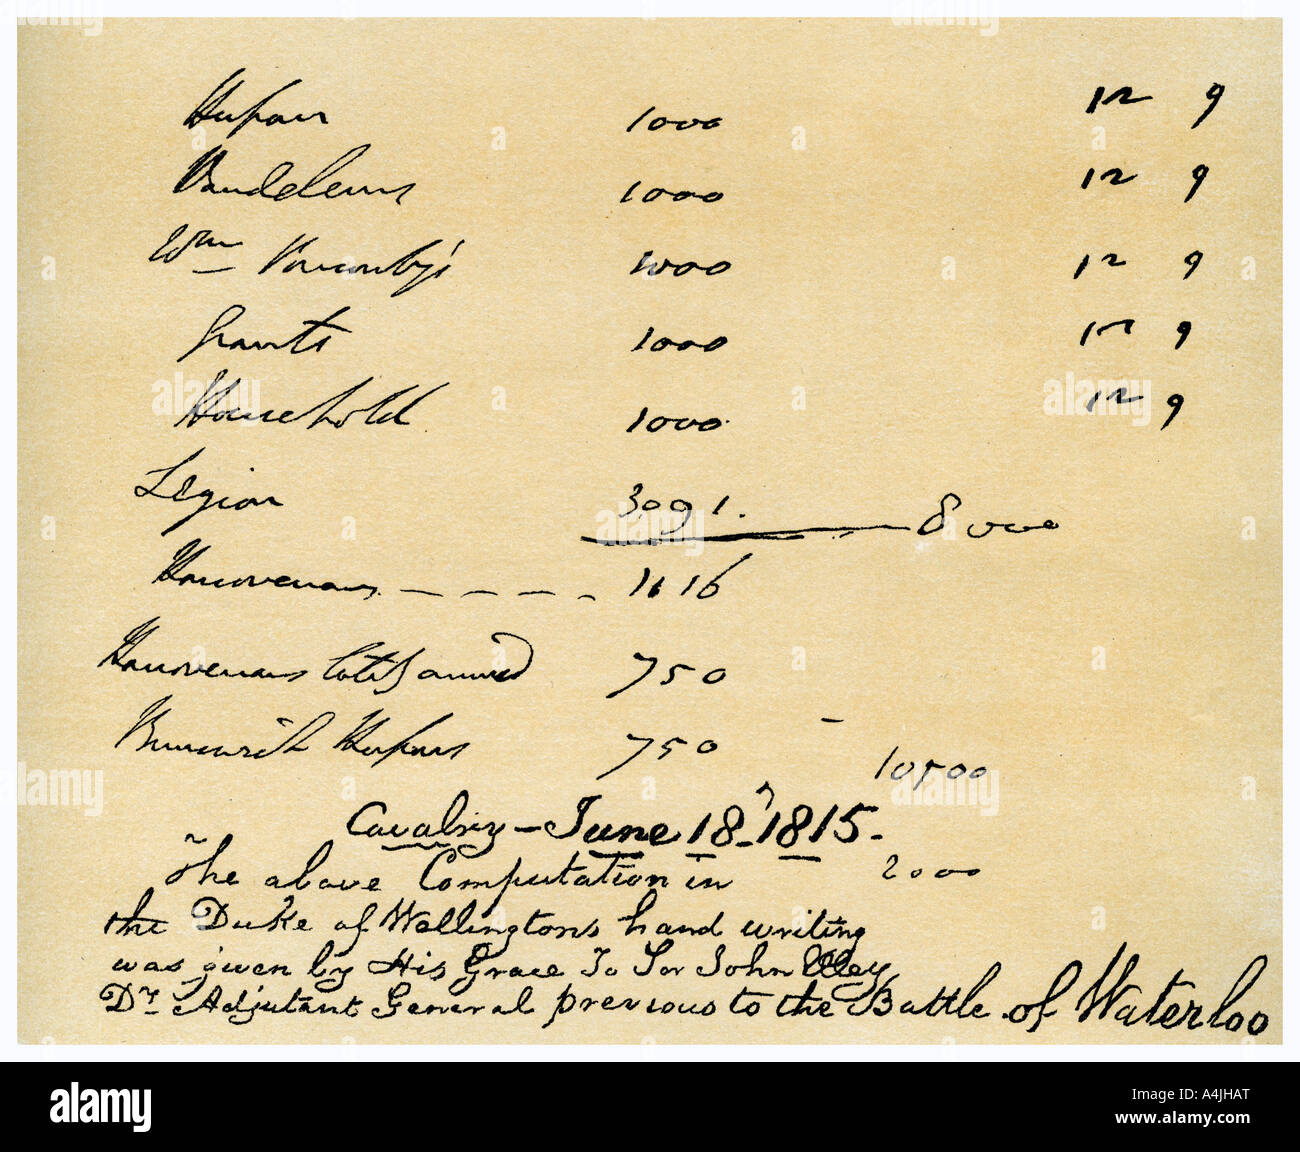 Hussar 1000 12 9
Vandeleurs 1000 12 9
Wm Ponsonby's 1000 12 9
Grants 1000 12 9
Household 1000 12 9
Legion 3091. 8000
Hanoverians 1116
Hanoverians arrived 750
Brunswick Hussars 750
10500
Cavalry - June 18, 1815.
The above Computation in 2000
the Duke of Wellingtons hand writing
was given by His Grace To Sir John Elley
Dy Adjutant General previous to the Battle of Waterloo
alamy
Image ID: A4JHAT
www.alamy.com